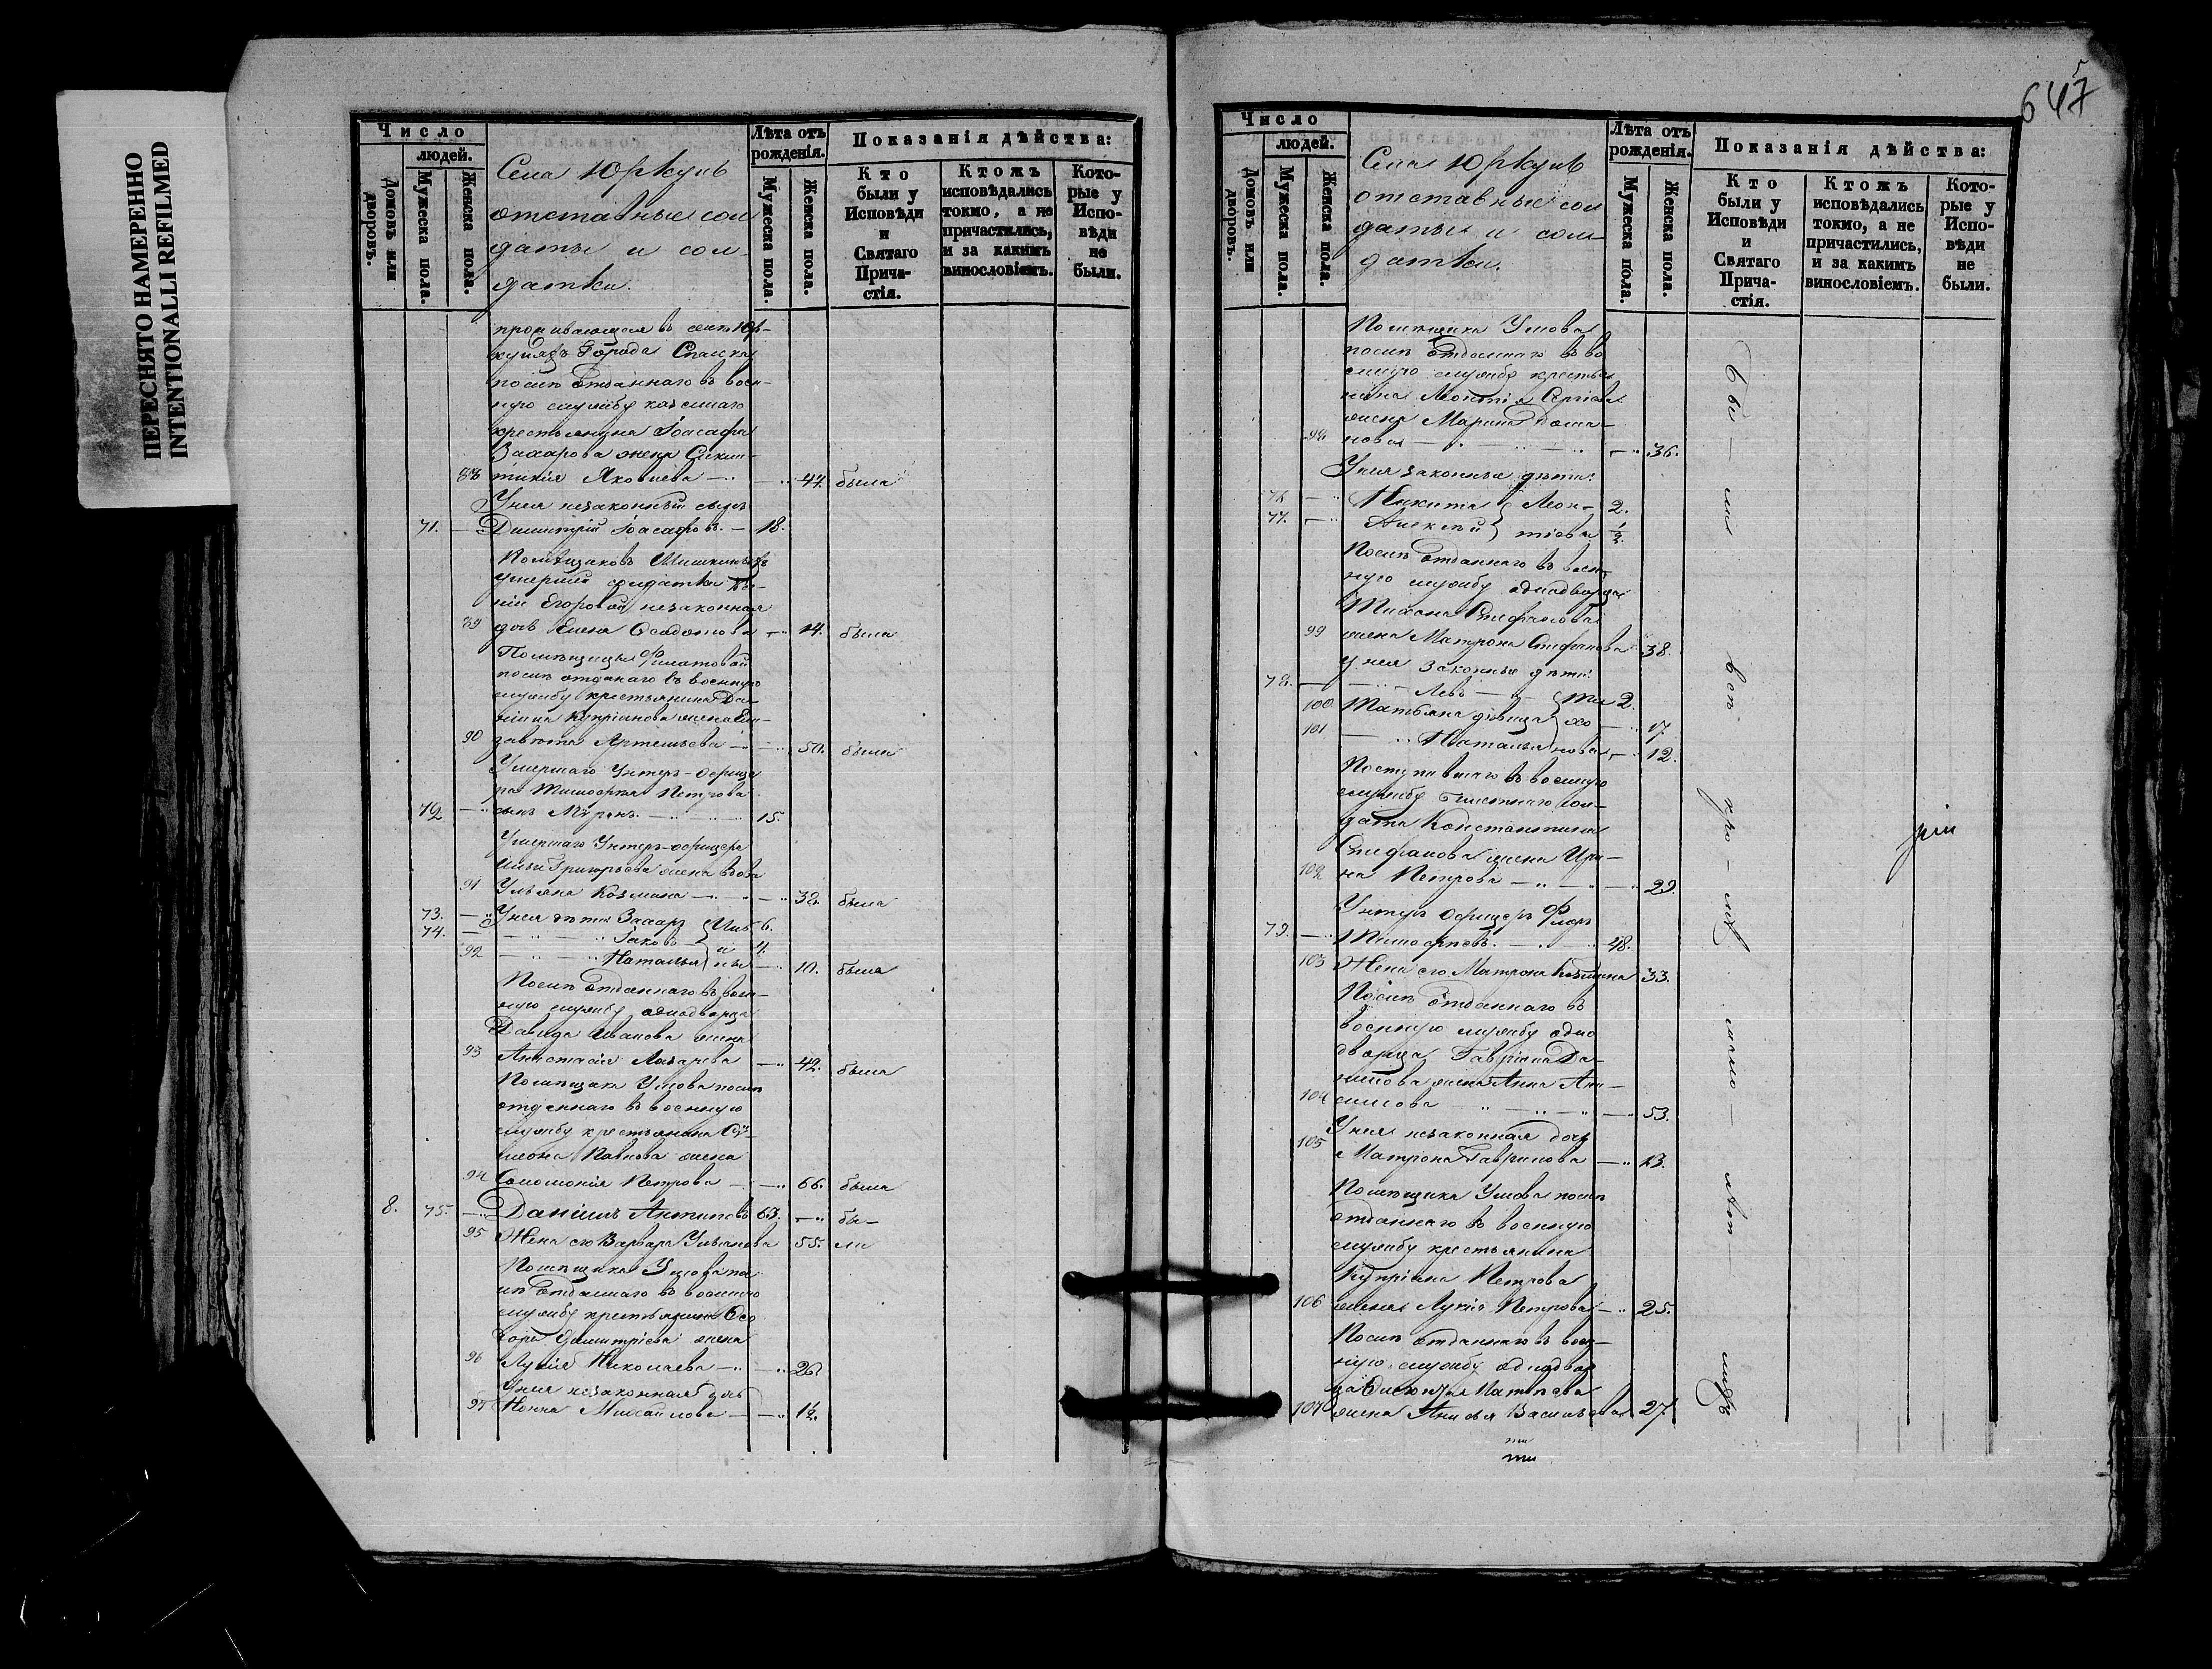 ПЕРЕСНЯТО НАМЕРЕННО
INTENTIONALLI REFILMED
Число
людей.
Домовъ или дворовъ.
Мужеска пола.
Женска пола.
Села Юркуль
отставные сол
даты и сол-
датки.
Лѣта отъ рожденія.
Мужеска пола.
Женска пола.
Показанія дѣйства:
Кто были у Исповѣди и Святаго Прича-стія.
Ктожъ исповѣдались токмо, а не причастились, и за какимъ винословіемъ.
Кото-рые у Испо-вѣди не были.
проживающая въ селѣ Юр-
куляхъ Города Спаска
послѣ отданнаго въ воен-
ную службу казеннаго
крестьянина Іоасафа
Захарова жена
88 Яковлева — 44. была
У нея незаконный сынъ
71. Димитрій Іоасафовъ — 18.
Помѣщиковъ
умершей солдатки
Егоровой незаконная
89 дочь Елена Ѳеодотова — 14. была
Помѣщицы Филатовой
послѣ отданаго въ военную
службу крестьянина Да-
ніила Купріанова жена Ели-
90 завета Артемьева — 50. была
Умершаго Унтеръ-офице
ра Тимофея Петрова
72 сынъ Мѵронъ — 15.
Умершаго Унтеръ-офицера
Ильи Григорьева жена вдова
91 Ульяна Козмина — 32. была
73. У нея дѣти Захаръ Иль 6.
74. Іаковъ и 4.
92 Наталья ны 10. была
Послѣ отданнаго въ воен-
ную службу однодворца
Давида Иванова жена
93 Анастасія Лазарева — 42. была
Помѣщика Умова послѣ
отданнаго въ военную
службу крестьянина Си-
меона Павлова жена
94 Соломонія Петрова — 66. была
8. 75. Даніилъ Антиповъ 63. бы-
95 Жена его Варвара Ульянова 55. ли
Помѣщика Умова по
слѣ отданнаго въ военную
службу крестьянина Ѳео
дора Димитріева жена
96 Лукія Николаева — 26
У нея незаконная дочь
97 Нонна Михайлова — 1½.
647
5
Число
людей.
Домовъ или дворовъ.
Мужеска пола.
Женска пола.
Села Юркуль
отставные сол
даты и сол-
датки.
Лѣта отъ рожденія.
Мужеска пола.
Женска пола.
Показанія дѣйства:
Кто были у Исповѣди и Святаго Прича-стія.
Ктожъ исповѣдались токмо, а не причастились, и за какимъ винословіемъ.
Кото-рые у Испо-вѣди не были.
Помѣщика Умова
послѣ отданнаго въ во
енную службу крестья
нина Леонтія Сергіева
жена Марина Рома-
98 нова — 36.
У нея законные дѣти:
76 Никита Леон- 2.
77. Алексѣй тіевы ½.
Послѣ отданнаго въ воен-
ную службу однодворца
Тихона Стефанова
99 жена Матрона Стефанова 38.
У нея законные дѣти:
78. Левъ — Ти 2.
100. Татьяна дѣвица хо 17.
101 Наталья новы 12.
Поступившаго въ военную
службу билетнаго сол-
дата Константина
Стефанова жена Ири-
102 на Петрова — 29.
Унтеръ Офицеръ Флоръ
79. Тимофѣевъ. 48.
103 Жена его Матрона Козмина 33.
Послѣ отданнаго въ
военную службу одно
дворца Гавріила Да-
нилова жена Анна Ани-
104 симова — 53.
У нея незаконная дочь
105 Матрона Гаврилова — 13.
Помѣщика Умова послѣ
отданнаго въ военную
службу крестьянина
Купріана Петрова
106 жена Лукія Петрова — 25.
Послѣ отданнаго въ воен-
ную службу однодвор
ца Матвѣева
107 жена Анисья Васильева 27.
Бы — ли всѣ кро — мѣ мало — лѣт — нихъ